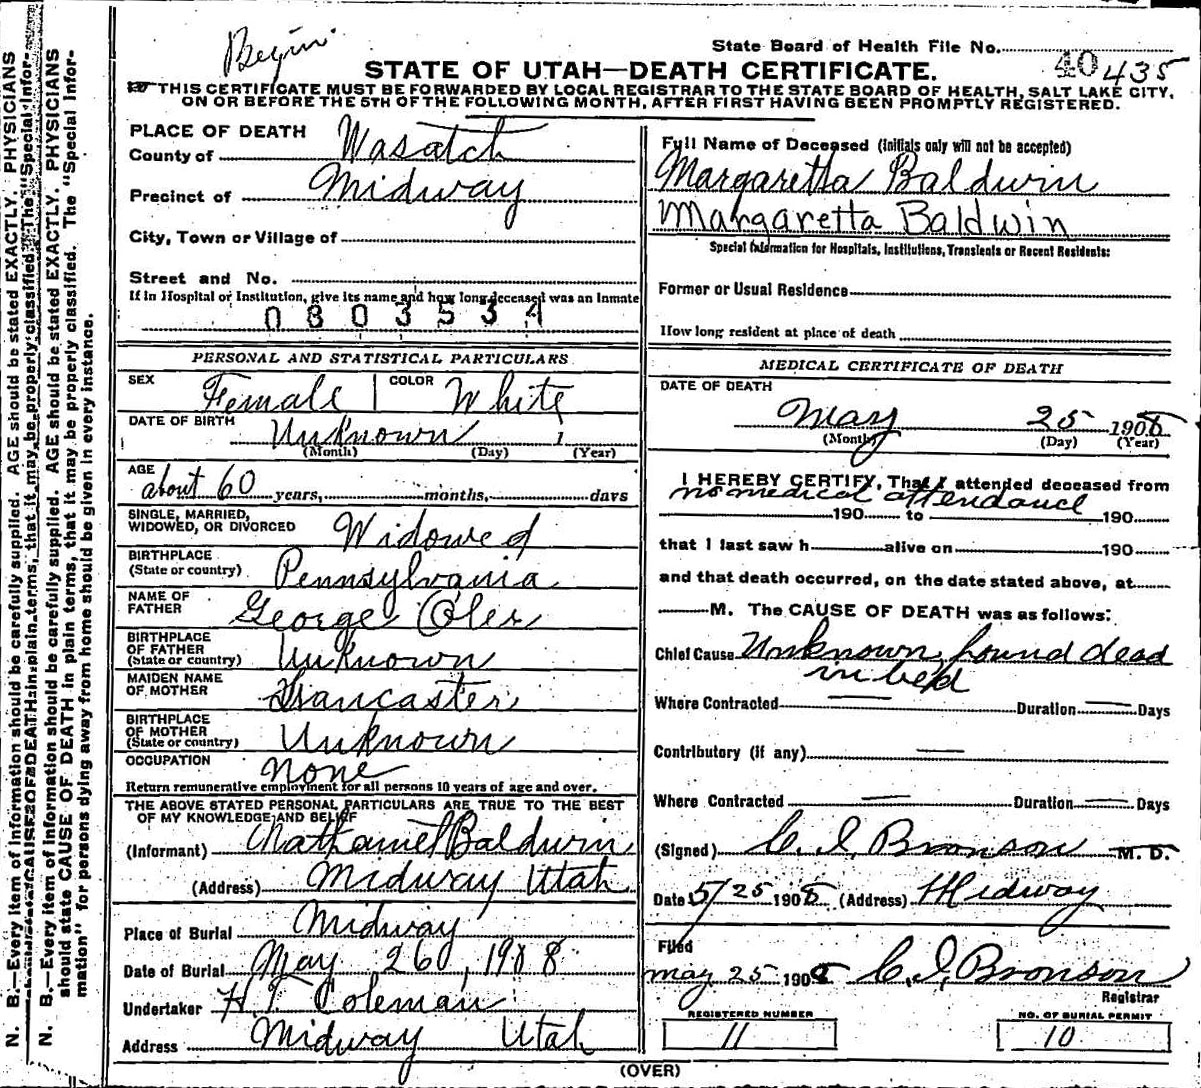 Begin
State Board of Health File No. 40 435
STATE OF UTAH—DEATH CERTIFICATE.
THIS CERTIFICATE MUST BE FORWARDED BY LOCAL REGISTRAR TO THE STATE BOARD OF HEALTH, SALT LAKE CITY,
ON OR BEFORE THE 5TH OF THE FOLLOWING MONTH, AFTER FIRST HAVING BEEN PROMPTLY REGISTERED.
PLACE OF DEATH
County of Wasatch
Precinct of Midway
City, Town or Village of
Street and No.
If in Hospital or Institution, give its name and how long deceased was an Inmate
0803534
PERSONAL AND STATISTICAL PARTICULARS
SEX Female COLOR White
DATE OF BIRTH Unknown
(Month) (Day) (Year)
AGE
about 60 years, months, days
SINGLE, MARRIED,
WIDOWED, OR DIVORCED Widowed
BIRTHPLACE
(State or country) Pennsylvania
NAME OF
FATHER George Oler
BIRTHPLACE
OF FATHER
(State or country) Unknown
MAIDEN NAME
OF MOTHER
BIRTHPLACE
OF MOTHER
(State or country) Unknown
OCCUPATION none
Return remunerative employment for all persons 10 years of age and over.
THE ABOVE STATED PERSONAL PARTICULARS ARE TRUE TO THE BEST
OF MY KNOWLEDGE AND BELIEF
(Informant) Nathaniel Baldwin
(Address) Midway Utah
Place of Burial Midway
Date of Burial May 26, 1908
Undertaker H.T. Coleman
Address Midway Utah
Full Name of Deceased (Initials only will not be accepted)
Margaretta Baldwin
Margaretta Baldwin
Special Information for Hospitals, Institutions, Transients or Recent Residents:
Former or Usual Residence
How long resident at place of death
MEDICAL CERTIFICATE OF DEATH
DATE OF DEATH
May 25 1908
(Month) (Day) (Year)
I HEREBY CERTIFY, That I attended deceased from
no medical attendance
190 to 190
that I last saw h alive on 190
and that death occurred, on the date stated above, at
M. The CAUSE OF DEATH was as follows:
Chief Cause Unknown, found dead
in bed
Where Contracted — Duration — Days
Contributory (if any) —
Where Contracted — Duration — Days
(Signed) C.I. Bronson M.D.
Date 5/25 1908 (Address) Midway
Filed
may 25 1908 C.I. Bronson
Registrar
REGISTERED NUMBER
11
NO. OF BURIAL PERMIT
10
(OVER)
N. B.—Every item of information should be carefully supplied. AGE should be stated EXACTLY. PHYSICIANS
should state CAUSE OF DEATH in plain terms, that it may be properly classified. The "Special Infor-
N. B.—Every item of information should be carefully supplied. AGE should be stated EXACTLY. PHYSICIANS
should state CAUSE OF DEATH in plain terms, that it may be properly classified. The "Special Infor-
mation" for persons dying away from home should be given in every instance.